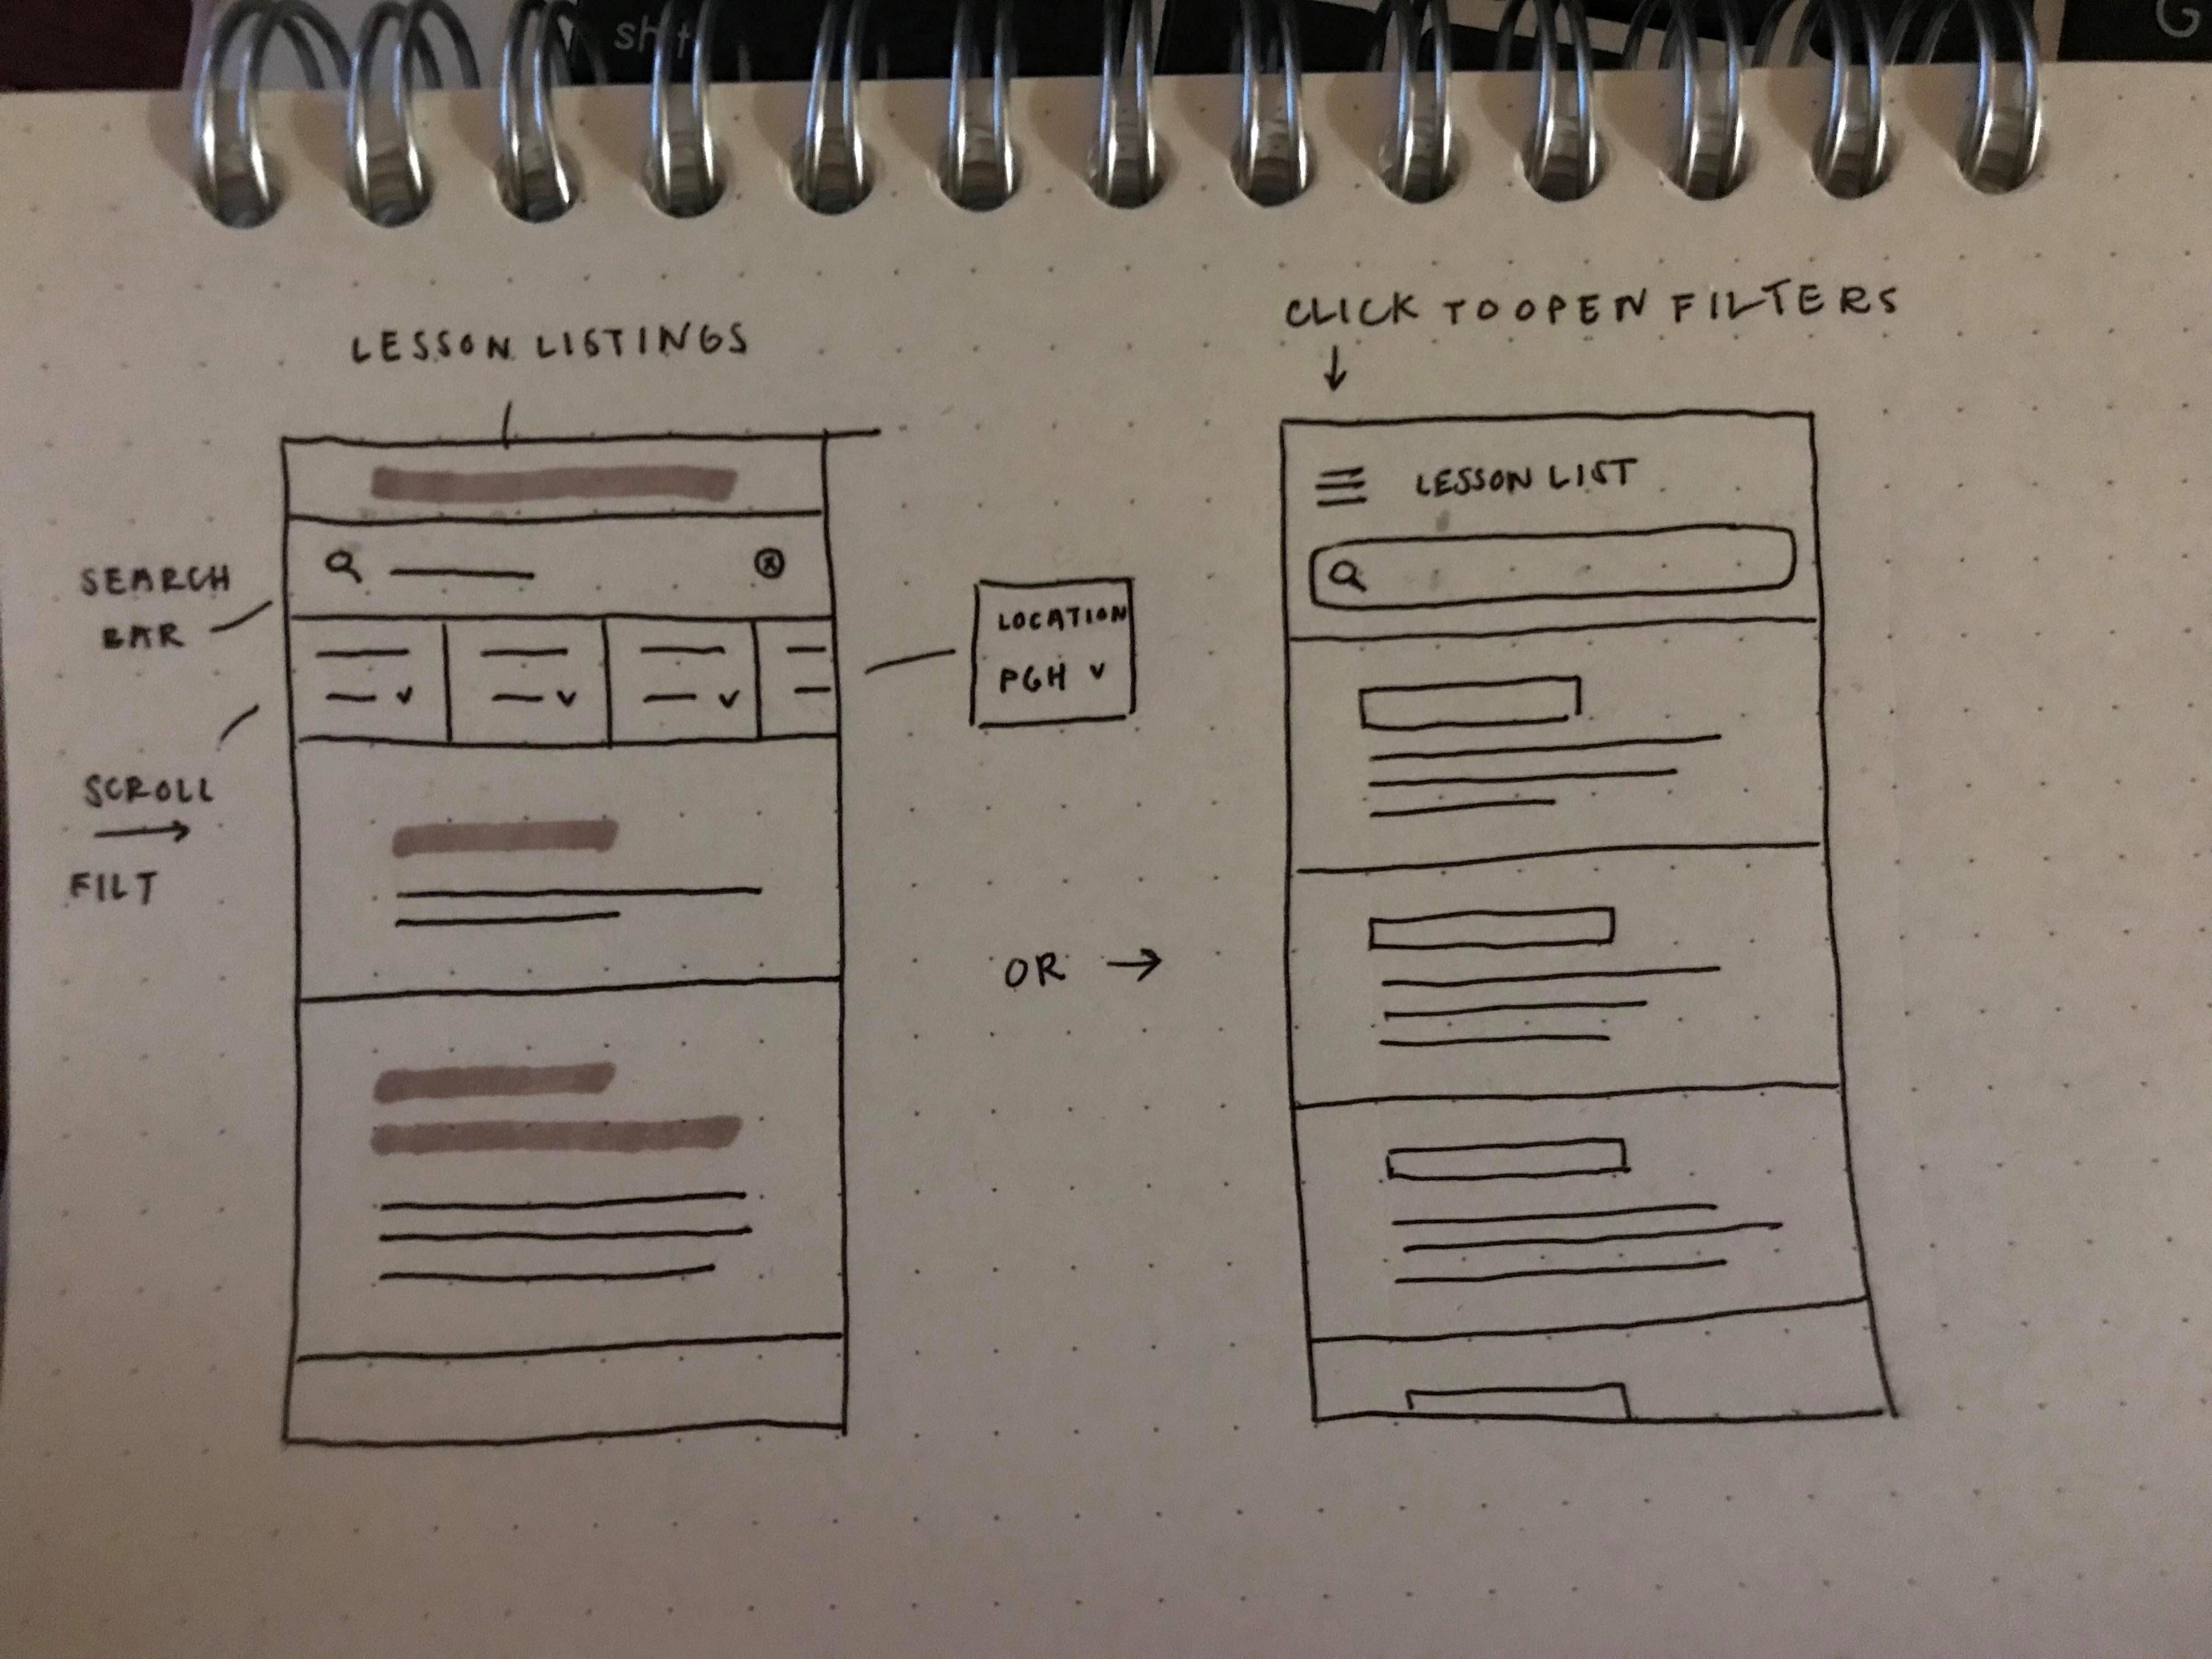 LESSON LISTINGS
SEARCH
BAR
SCROLL
FILT
LOCATION
PGH
OR
CLICK TO OPEN FILTERS
LESSON LIST